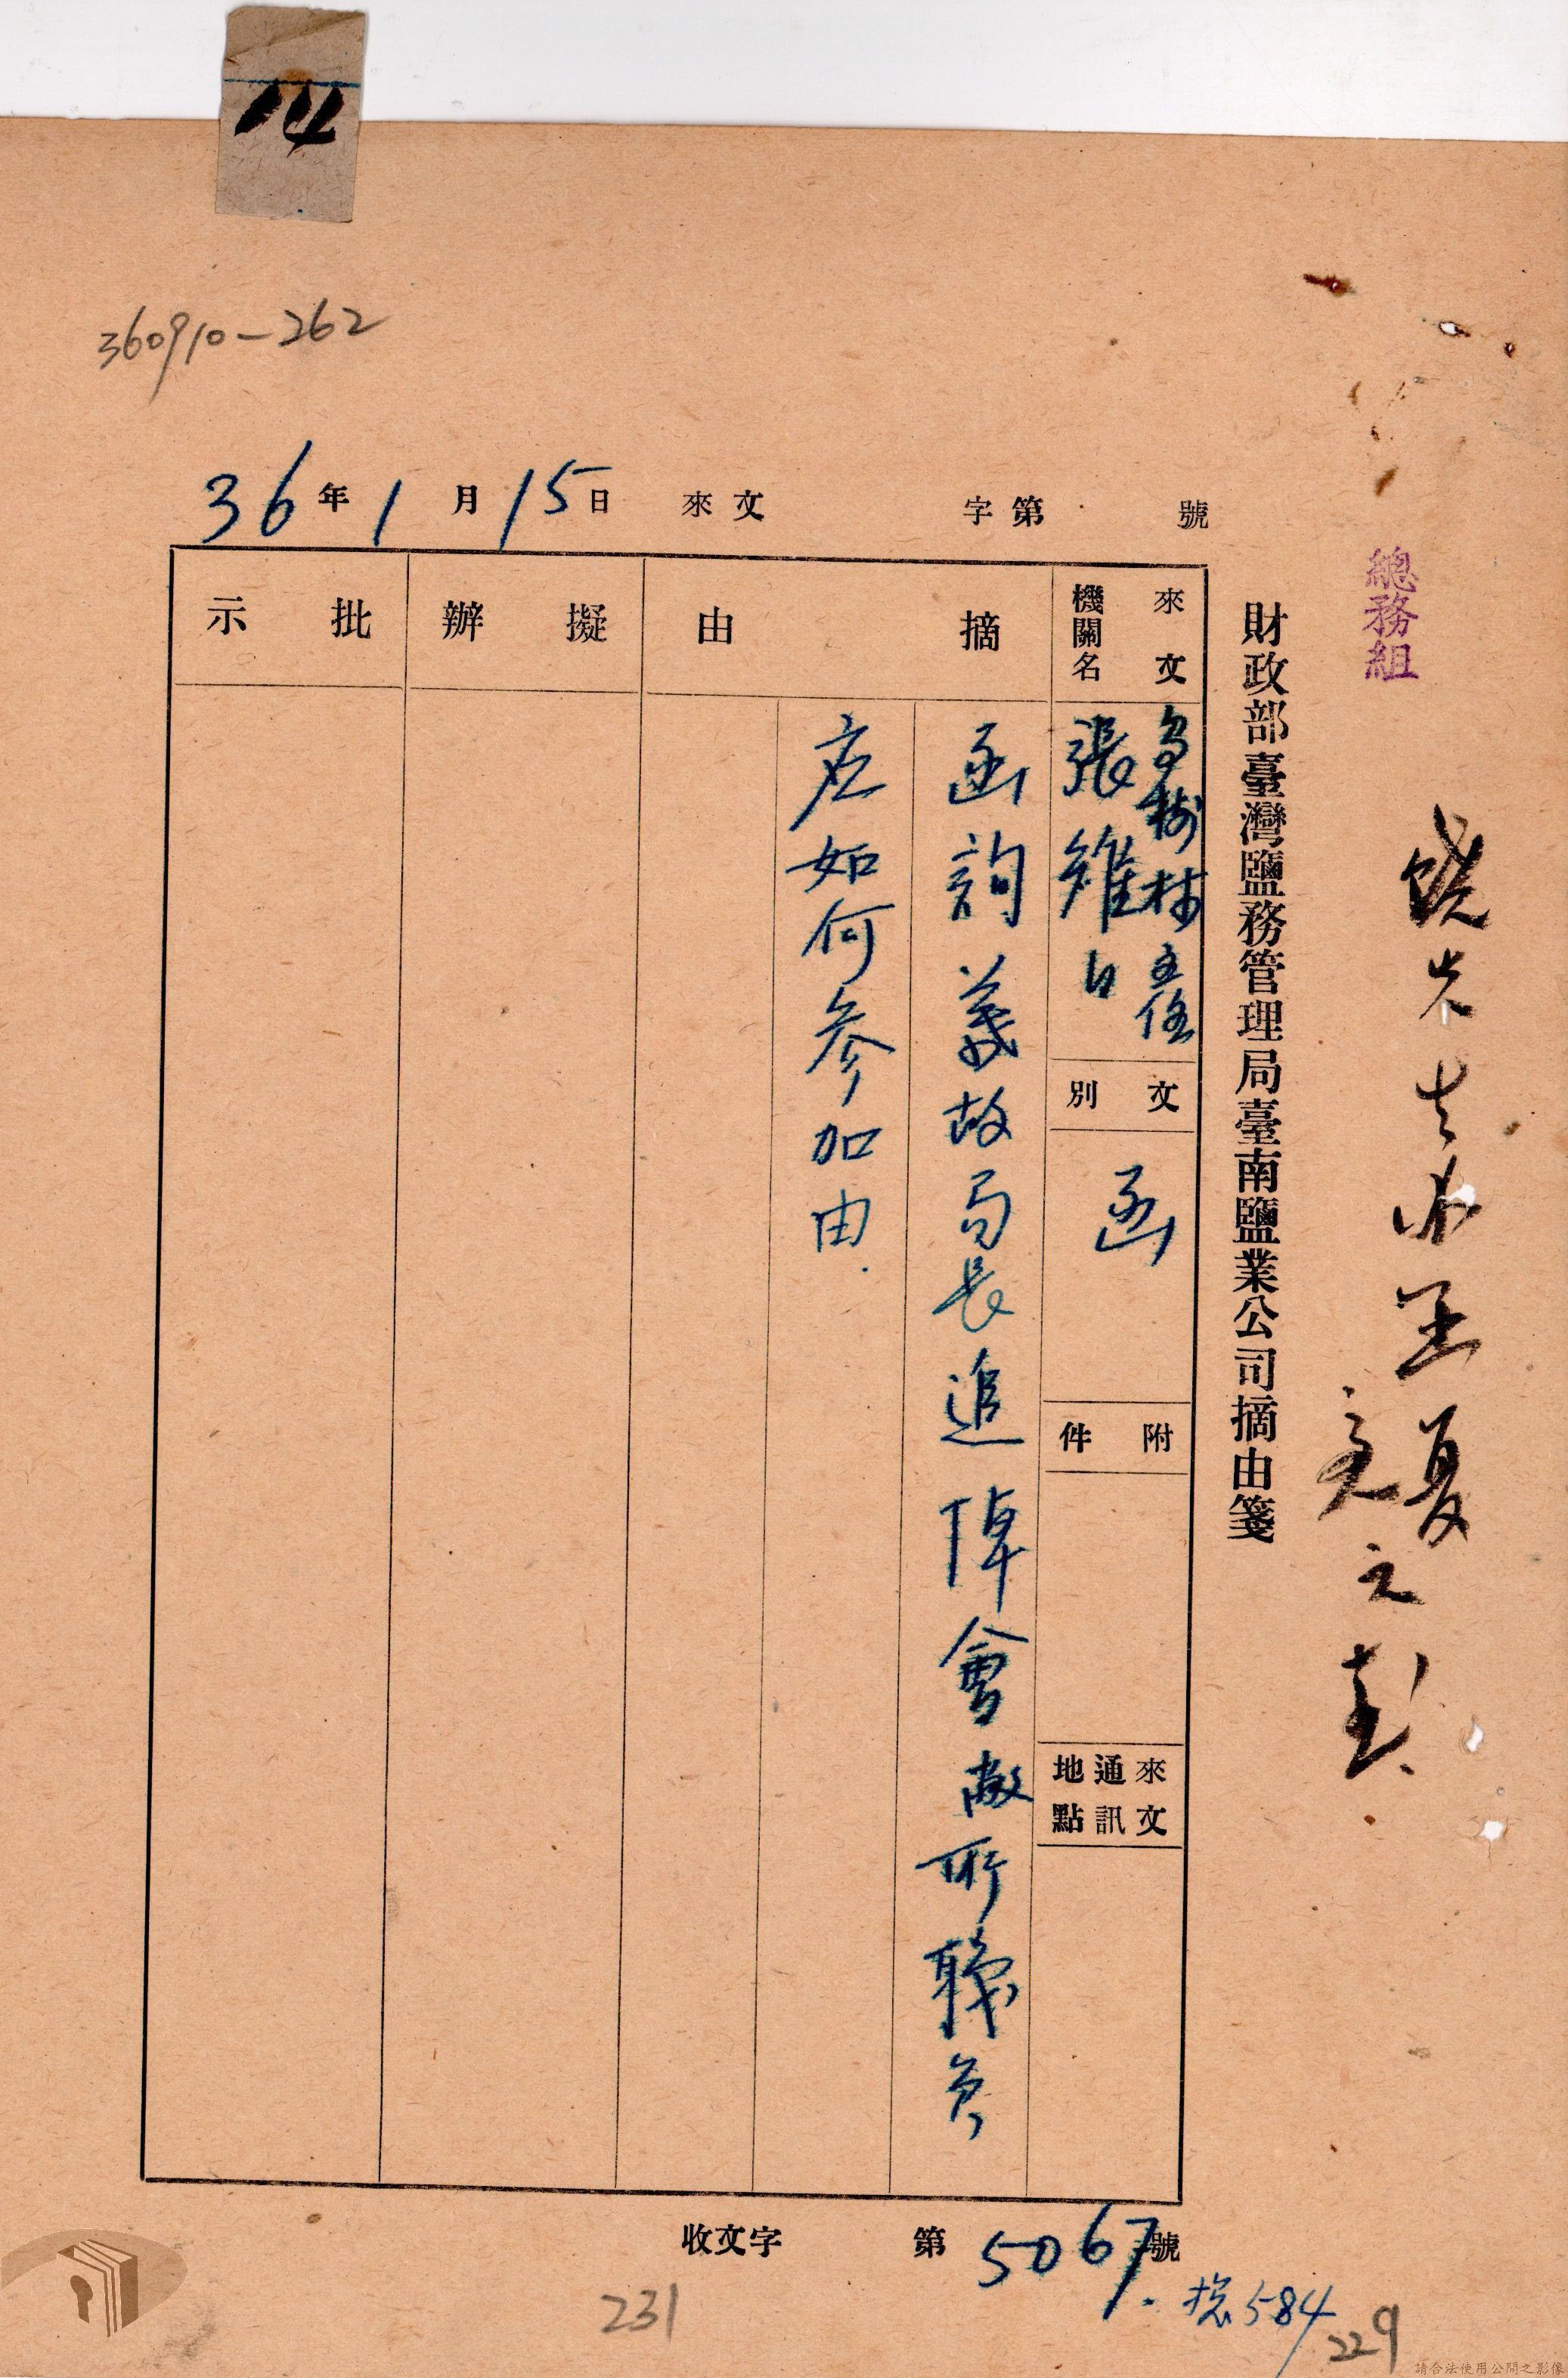 114
360910-262
總務組
財政部臺灣鹽務管理局臺南鹽業公司摘由箋
36年1月15日 來文 字第 號
來文機關名
烏樹林主任
張維白
文別
函
附件
來文通訊地點
摘由
函詢葉故局長追悼會敝所職員
應如何參加由.
擬辦
批示
收文字第5067號
總584
231
229
請合法使用公開之影像